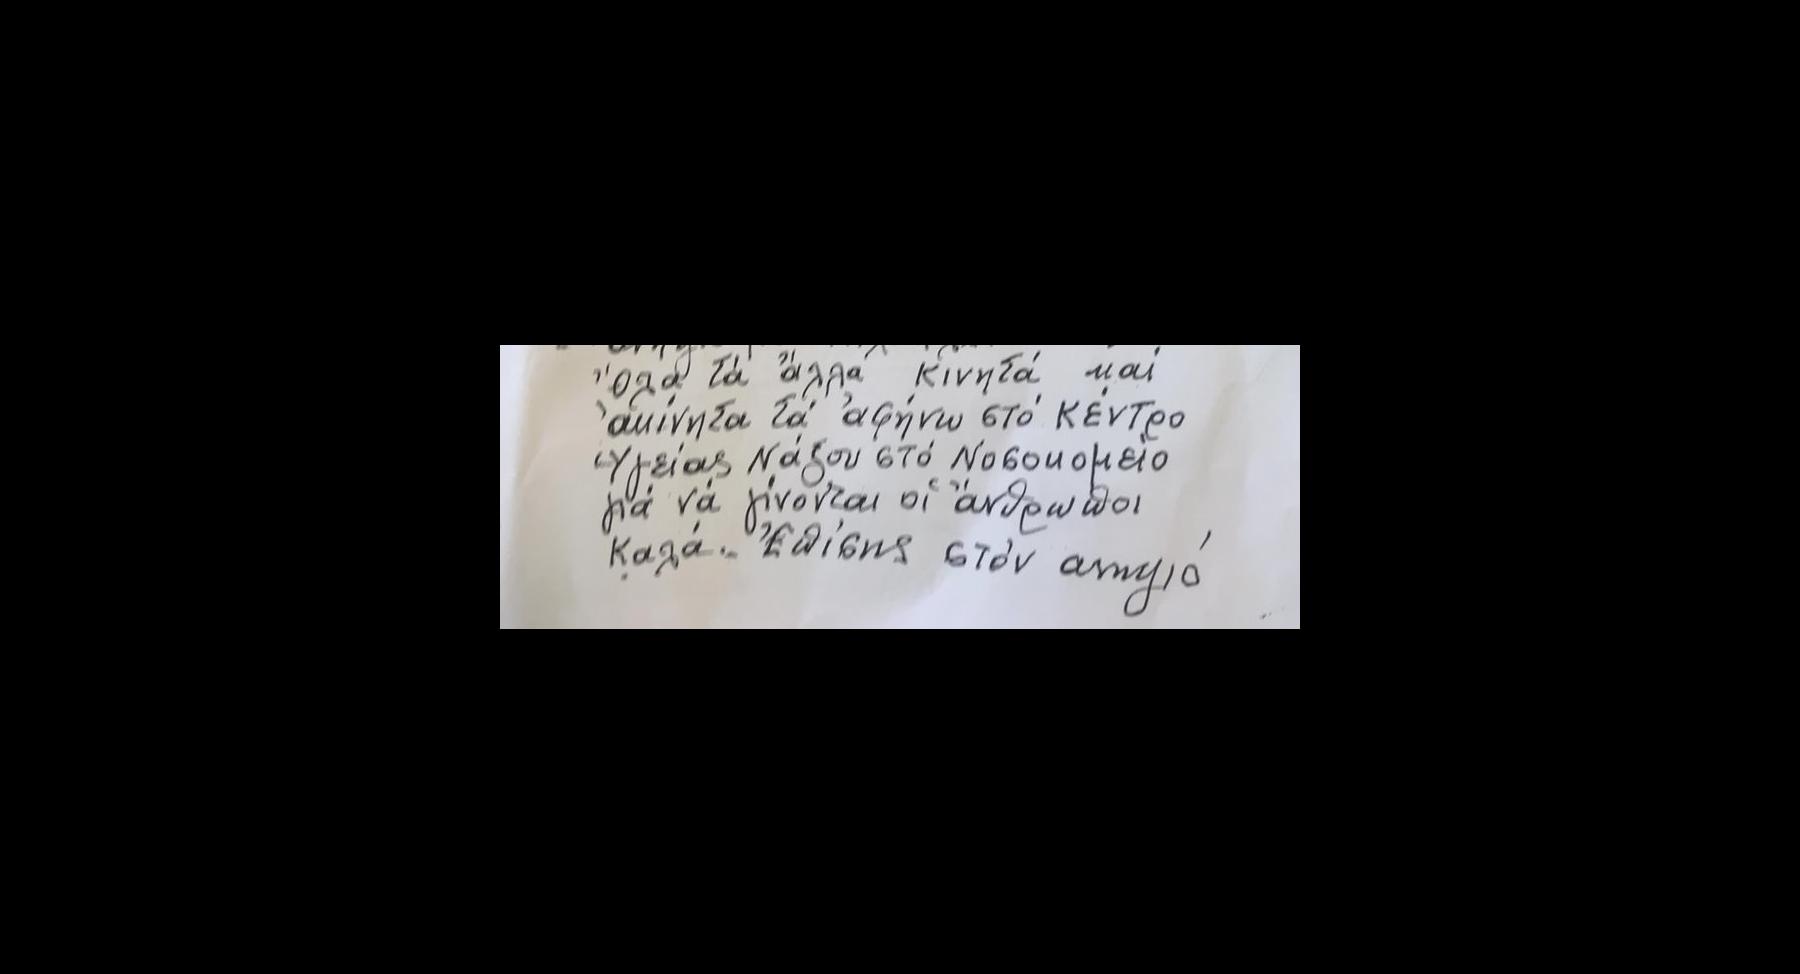 Ὅλα τά ἄλλα κινητά καί
ἀκίνητα τά ἀφήνω στό Κέντρο
Ὑγείας Νάξου στό Νοσοκομεῖο
γιά νά γίνονται οἱ ἄνθρωποι
καλά.- Ἐπίσης στόν ανηψιό